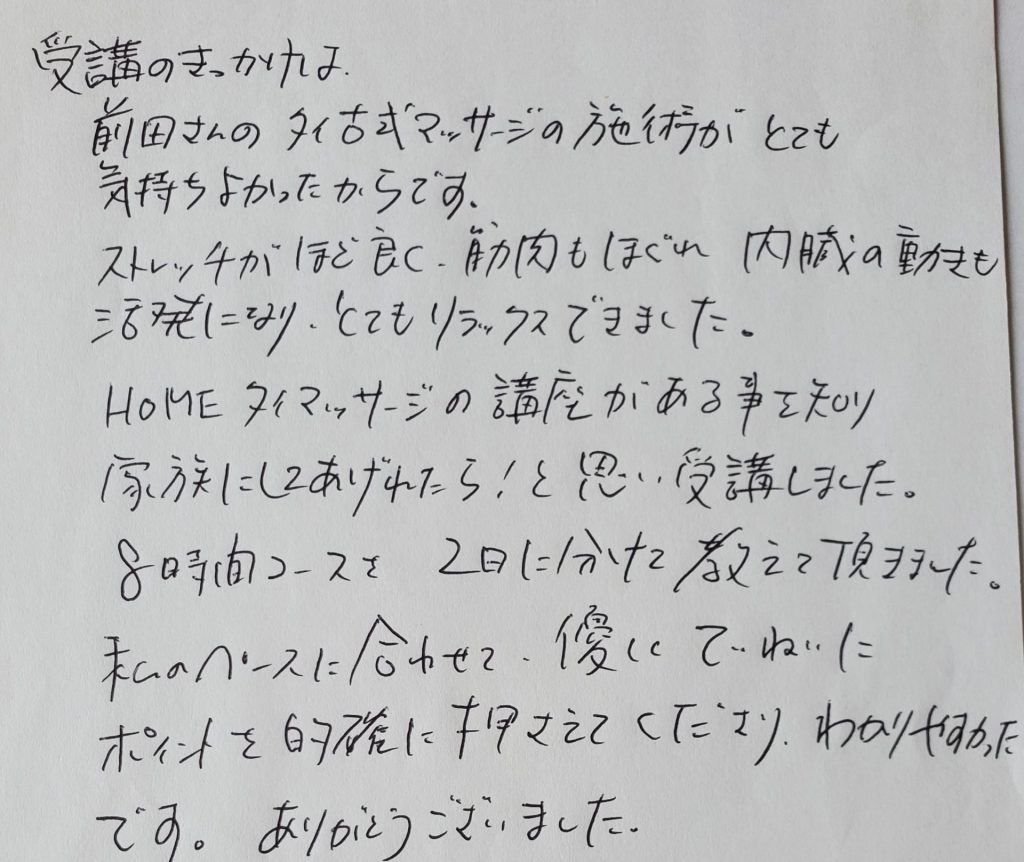 受講のきっかけは、
前田さんの タイ古式マッサージの 施術が とても
気持ちよかったからです。
ストレッチが ほど良く、筋肉もほぐれ 内臓の動きも
活発になり、とてもリラックスできました。
HOME タイマッサージの 講座が ある事を知り
家族にしてあげれたら!と 思い 受講しました。
8時間コースを 2日に分けて 教えて頂きました。
私のペースに合わせて、優しく ていねいに
ポイントを的確に押さえてくださり、わかりやすかった
です。 ありがとうございました。